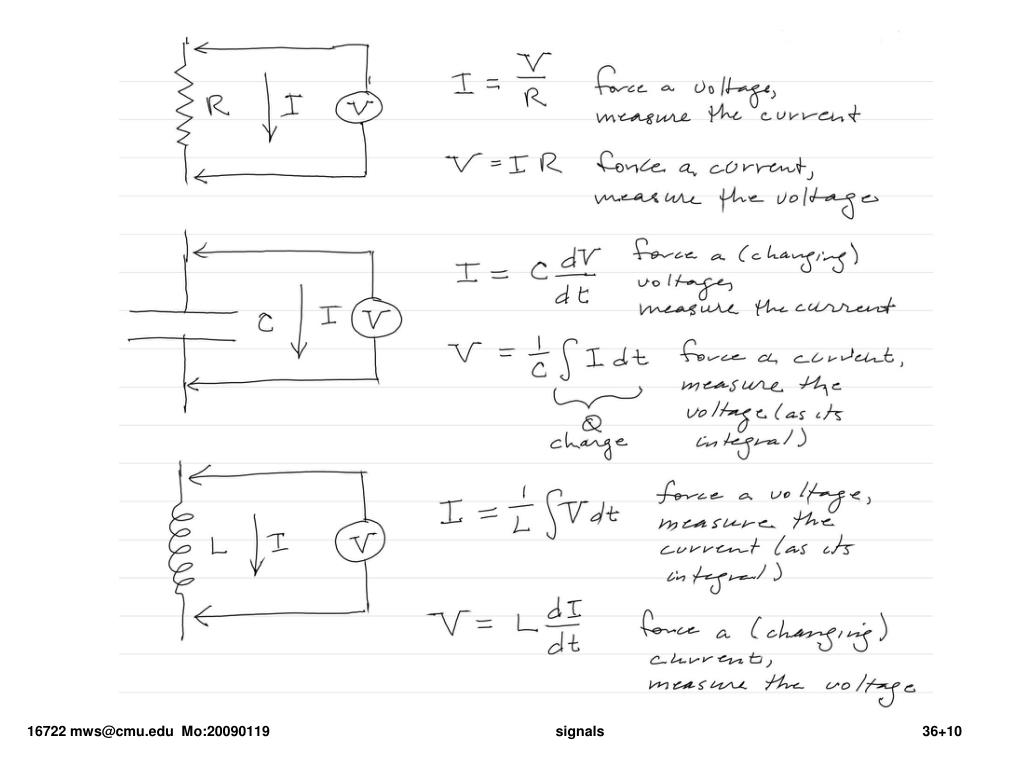 R I V
I = V/R force a voltage,
measure the current
V = I R force a current,
measure the voltage
C I V
I = C dV/dt force a (changing)
voltage,
measure the current
V = 1/C ∫ I dt force a current,
measure the
voltage (as its
integral)
Q
charge
L I V
I = 1/L ∫ V dt force a voltage,
measure the
current (as its
integral)
V = L dI/dt force a (changing)
current,
measure the voltage
16722 mws@cmu.edu Mo:20090119 signals 36+10